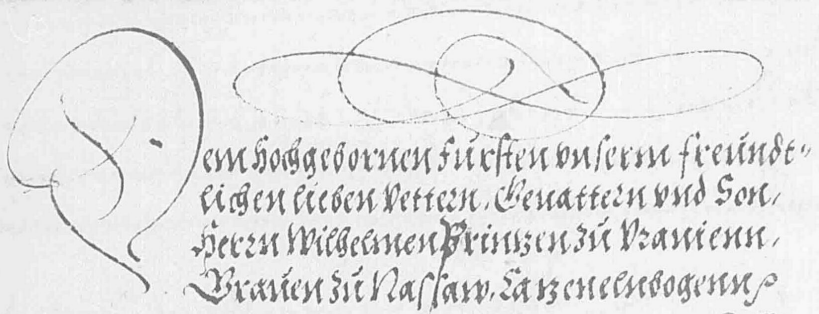 Dem Hochgebornen Fürsten vnserm freündt-
lichen lieben Vettern, Geuattern vnd Son,
Herrn Wilhelmen Printzen zů Vranienn,
Grauen zů Nassaw, Catzenelnbogenn